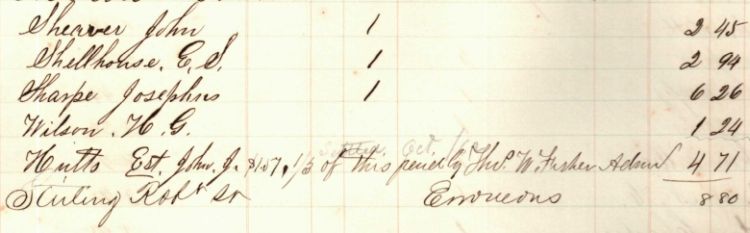 Shearer John 1 2 45
Shellhouse. E. S. 1 2 94
Sharpe Josephus 1 6 26
Wilson. H. G. 1 24
Hutto Est. John. J. $1.57, 1/3 of this paid by Tho. W. Fusher Admr 4 71
Stirling Robt Sr Erroneous 8 80